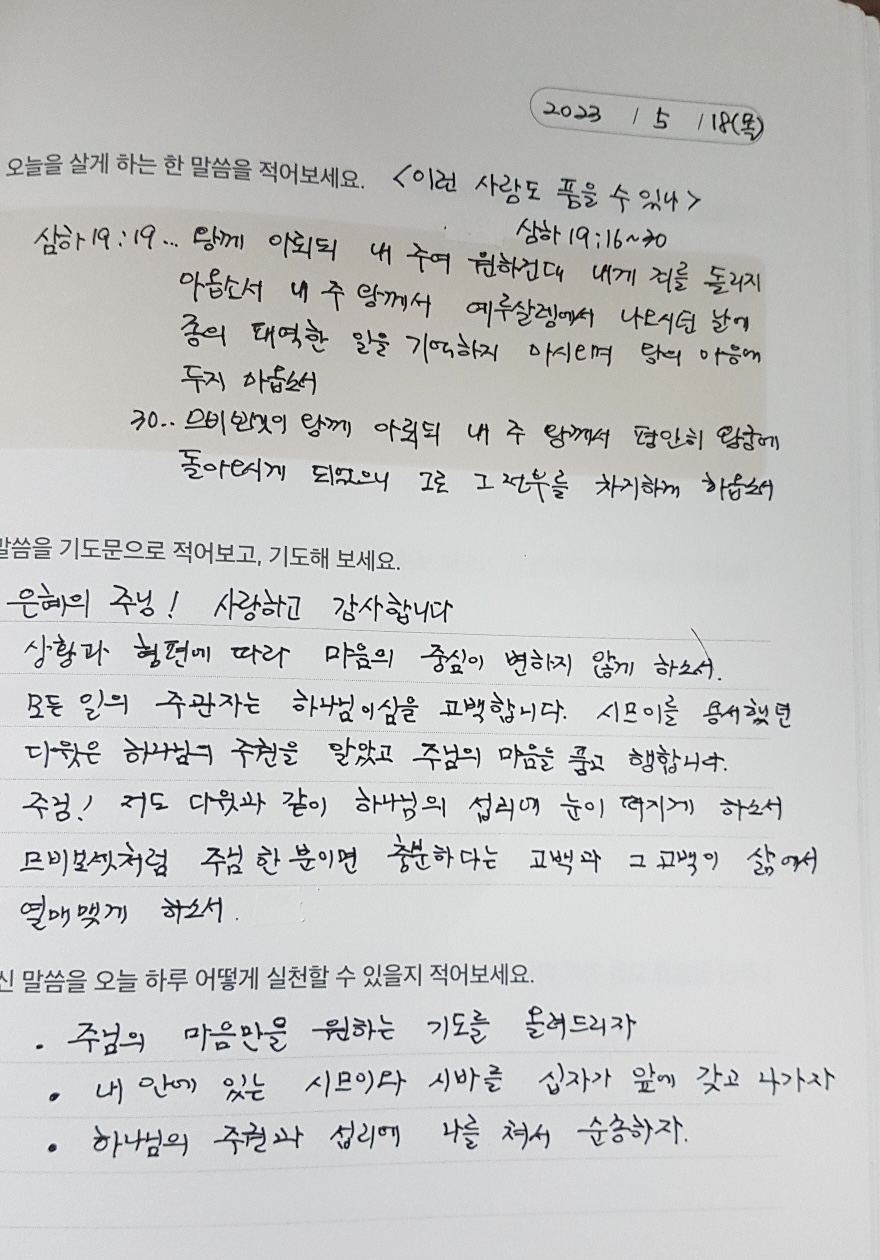 2023 / 5 / 18(목)
오늘을 살게 하는 한 말씀을 적어보세요. <이런 사람도 품을 수 있나>
삼하 19:16~30
삼하 19:19... 왕께 아뢰되 내 주여 원하건대 내게 죄를 돌리지
마옵소서 내 주 왕께서 예루살렘에서 나오시던 날에
종의 패역한 일을 기억하지 마시오며 왕의 마음에
두지 마옵소서
30.. 므비보셋이 왕께 아뢰되 내 주 왕께서 평안히 왕궁에
돌아오시게 되었으니 그로 그 전부를 차지하게 하옵소서
말씀을 기도문으로 적어보고, 기도해 보세요.
은혜의 주님! 사랑하고 감사합니다
상황과 형편에 따라 마음의 중심이 변하지 않게 하소서.
모든 일의 주관자는 하나님이심을 고백합니다. 시므이를 용서했던
다윗은 하나님의 주권을 알았고 주님의 마음을 품고 행합니다.
주님! 저도 다윗과 같이 하나님의 섭리에 눈이 떠지게 하소서
므비보셋처럼 주님 한 분이면 충분하다는 고백과 그 고백이 삶에서
열매맺게 하소서.
신 말씀을 오늘 하루 어떻게 실천할 수 있을지 적어보세요.
• 주님의 마음만을 원하는 기도를 올려드리자
• 내 안에 있는 시므이와 시바를 십자가 앞에 갖고 나가자
• 하나님의 주권과 섭리에 나를 쳐서 순종하자.